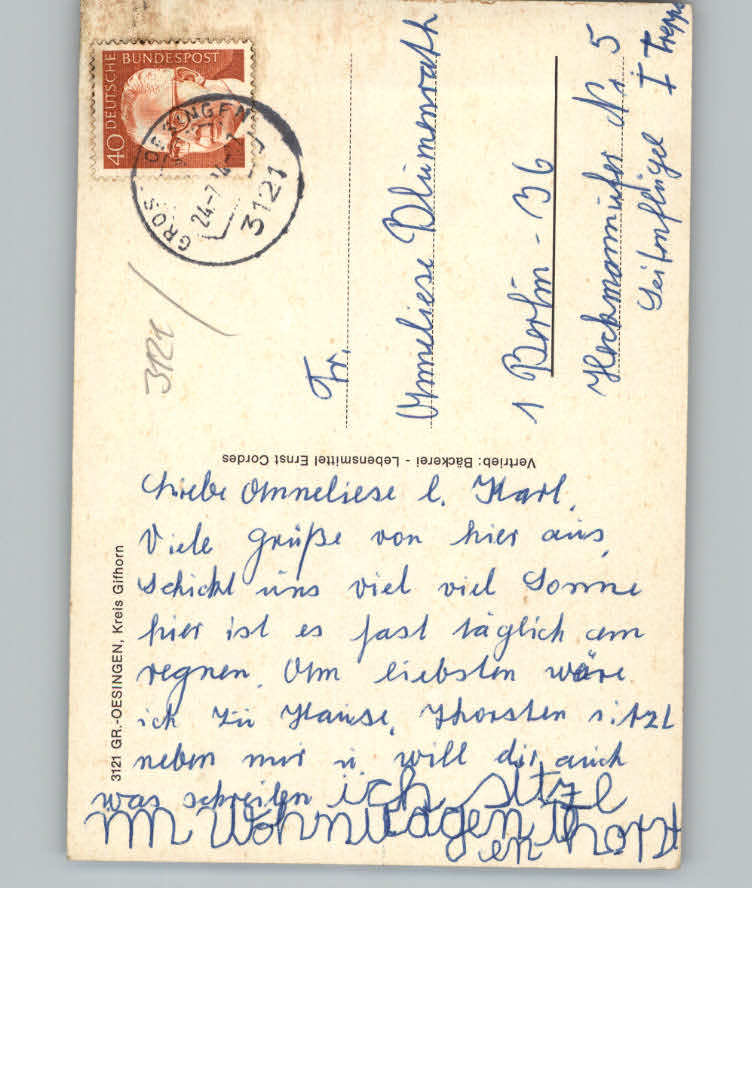 DEUTSCHE BUNDESPOST
40
GROSS OESINGEN
24-7
3121
3121
Fr.
Anneliese Blumenrath
1 Berlin - 36
Heckmannufer Nr 5
Seitenflügel I Treppe
Vertrieb: Bäckerei - Lebensmittel Ernst Cordes
3121 GR.-OESINGEN, Kreis Gifhorn
Liebe Anneliese l. Karl.
Viele Grüße von hier aus,
Schickt uns viel viel Sonne
hier ist es fast täglich am
regnen. Am liebsten wäre
ich zu Hause, Thorsten sitzt
neben mir u. will dir auch
was schreiben ich sitze
im Wohnwagen Thorst
en